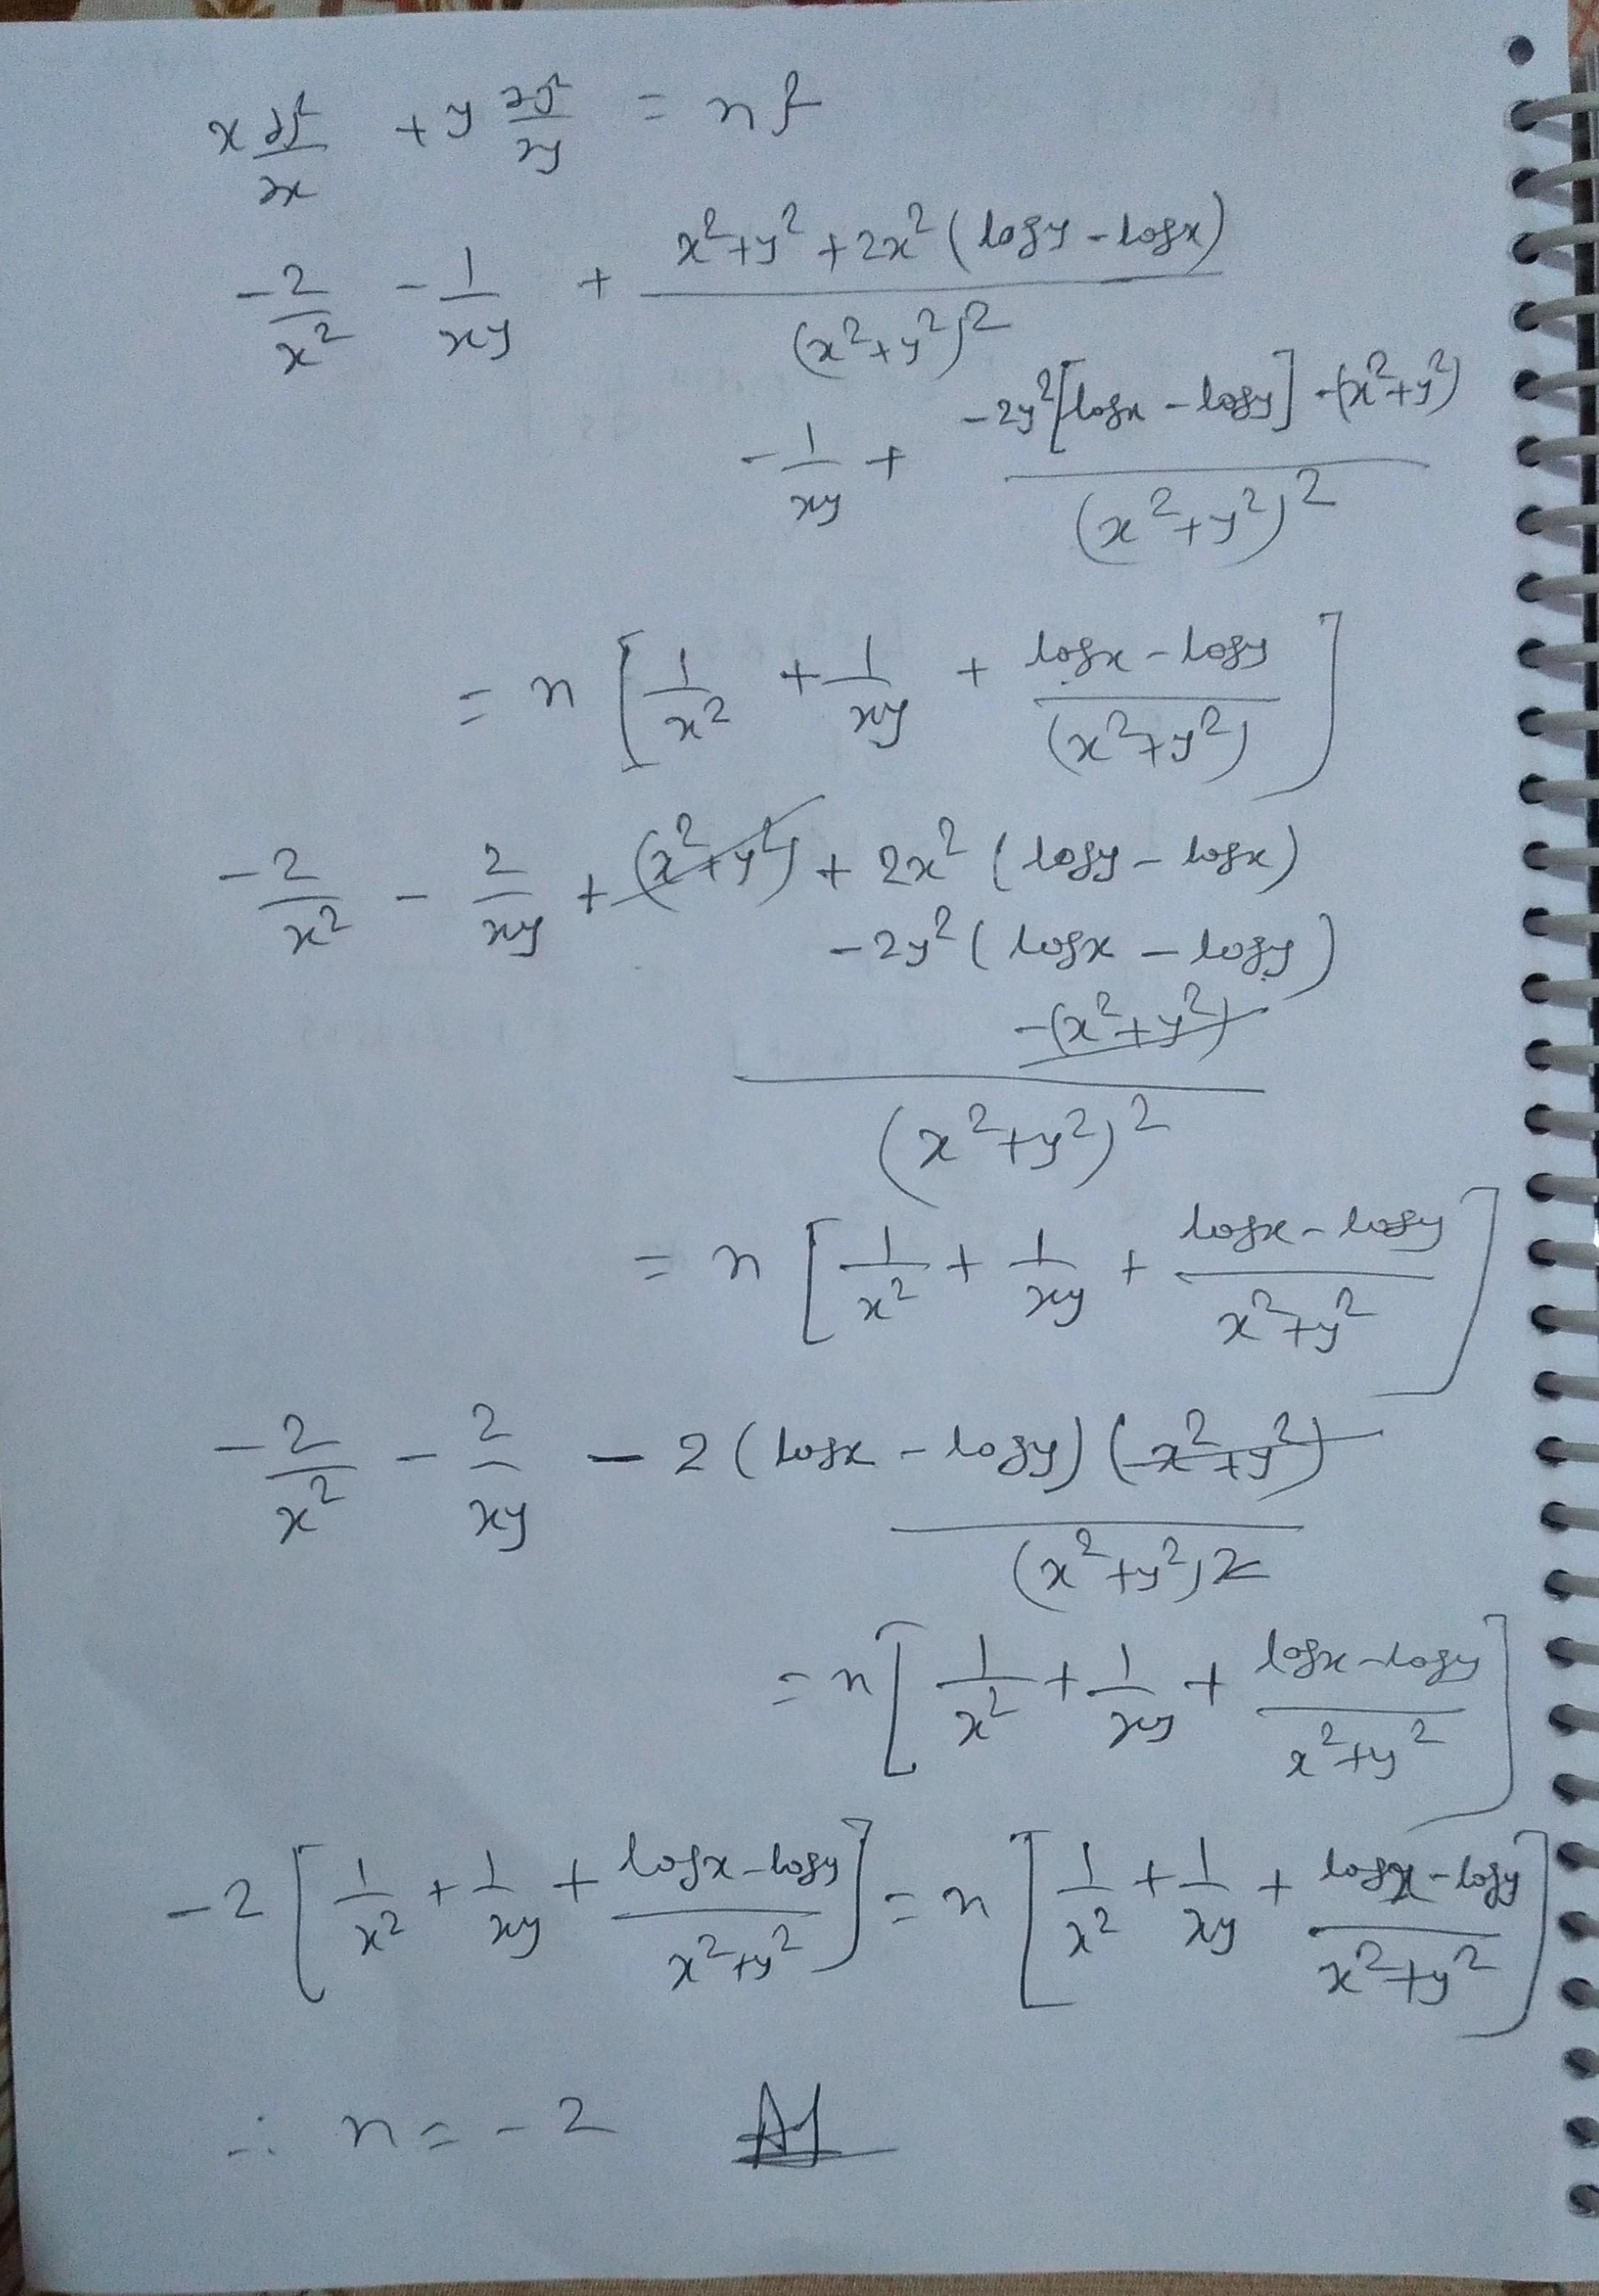 x ∂f/∂x + y ∂f/∂y = nf
-2/x² - 1/xy + (x²+y²+2x²(logy-logx))/(x²+y²)²
-1/xy + (-2y²[logx-logy]-(x²+y²))/(x²+y²)²
= n[1/x² + 1/xy + (logx-logy)/(x²+y²)]
-2/x² - 2/xy + (x²+y²) + 2x²(logy-logx)
-2y²(logx-logy)
-(x²+y²)
(x²+y²)²
= n[1/x² + 1/xy + (logx-logy)/(x²+y²)]
-2/x² - 2/xy - 2(logx-logy)(x²+y²)/(x²+y²)2
= n[1/x² + 1/xy + (logx-logy)/(x²+y²)]
-2[1/x² + 1/xy + (logx-logy)/(x²+y²)] = n[1/x² + 1/xy + (logx-logy)/(x²+y²)]
∴ n = -2